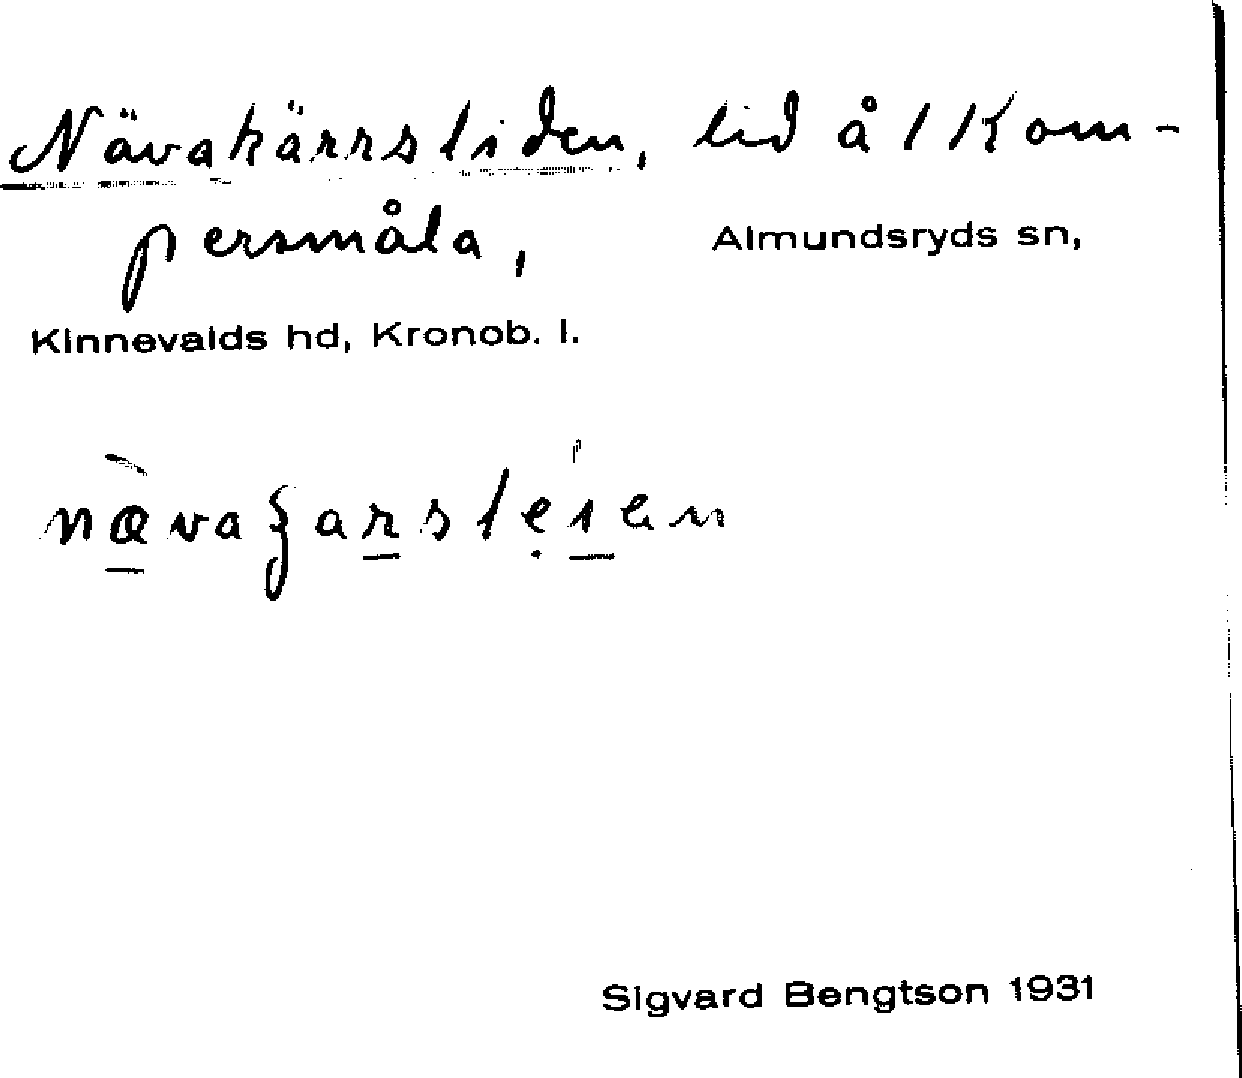 Nävakärrsliden, lid å 1 Kom-
persmåla, Almundsryds sn,
Kinnevalds hd, Kronob. l.
Sigvard Bengtson 1931